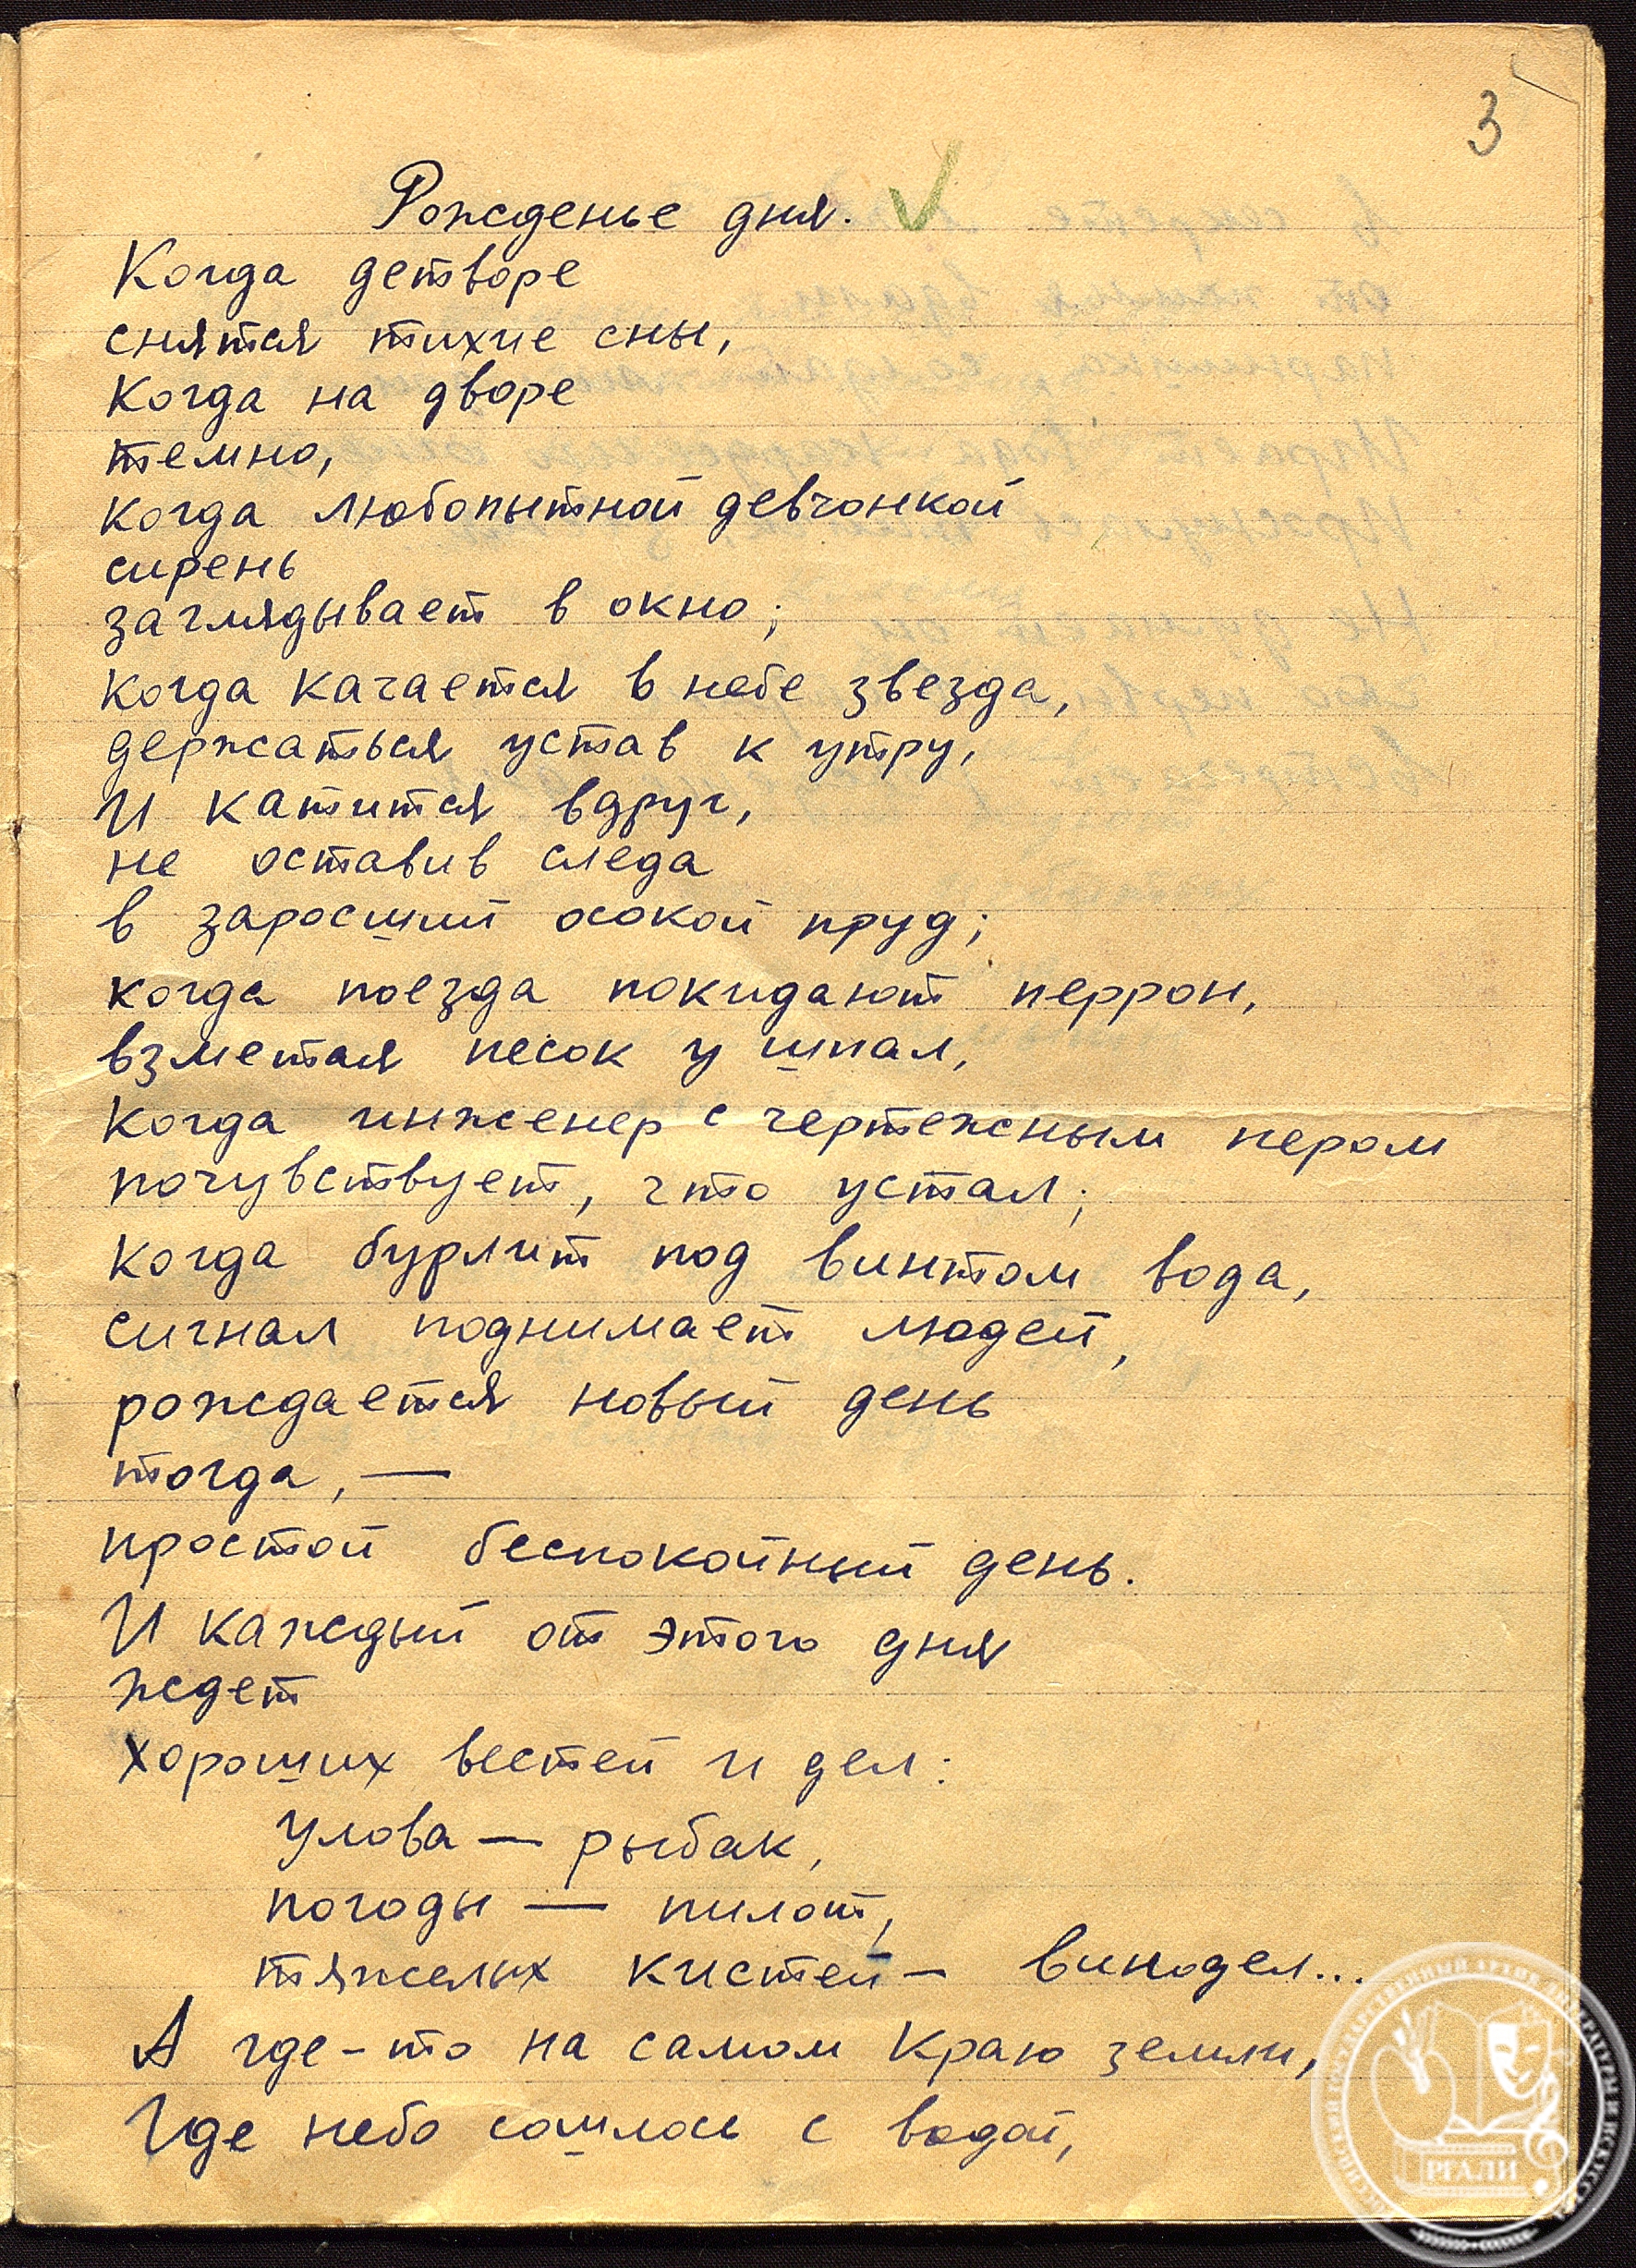 3
Рожденье дня.
Когда детворе
снятся тихие сны,
Когда на дворе
темно,
когда любопытной девчонкой
сирень
заглядывает в окно;
когда качается в небе звезда,
держаться устав к утру,
И катится вдруг,
не оставив следа
в заросший осокой пруд;
когда поезда покидают перрон,
взметая песок у шпал,
когда инженер с чертежным пером
почувствует, что устал;
когда бурлит под винтом вода,
сигнал поднимает людей,
рождается новый день
тогда, —
простой беспокойный день.
И каждый от этого дня
ждет
хороших вестей и дел:
улова — рыбак,
погоды — пилот,
тяжелых кистей — винодел...
А где-то на самом краю земли,
Где небо сошлось с водой,
РГАЛИ